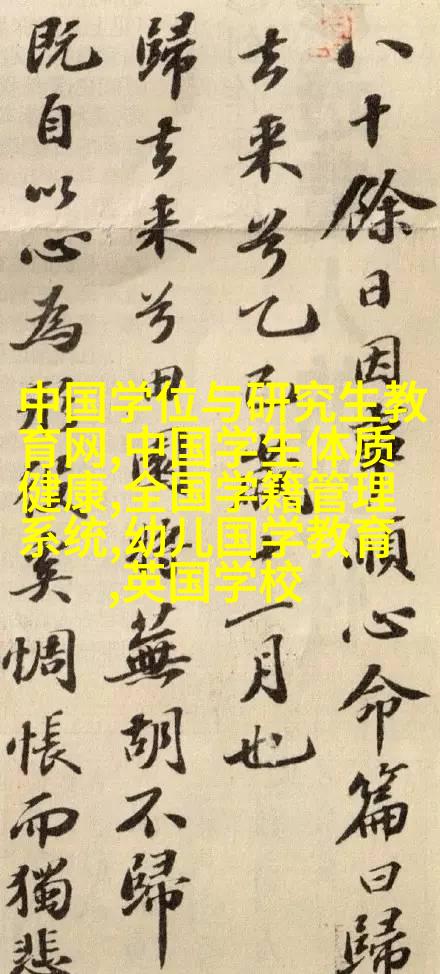 八十餘日因事順心命篇曰歸
去来兮乙巳歲十一月也
歸去来兮田園将蕪胡不歸
既自以心為形役矣惆悵而獨悲
中国学位与研究生教
育网,中国学生体质
健康,全国学籍管理
系统,幼儿国学教育
,英国学校